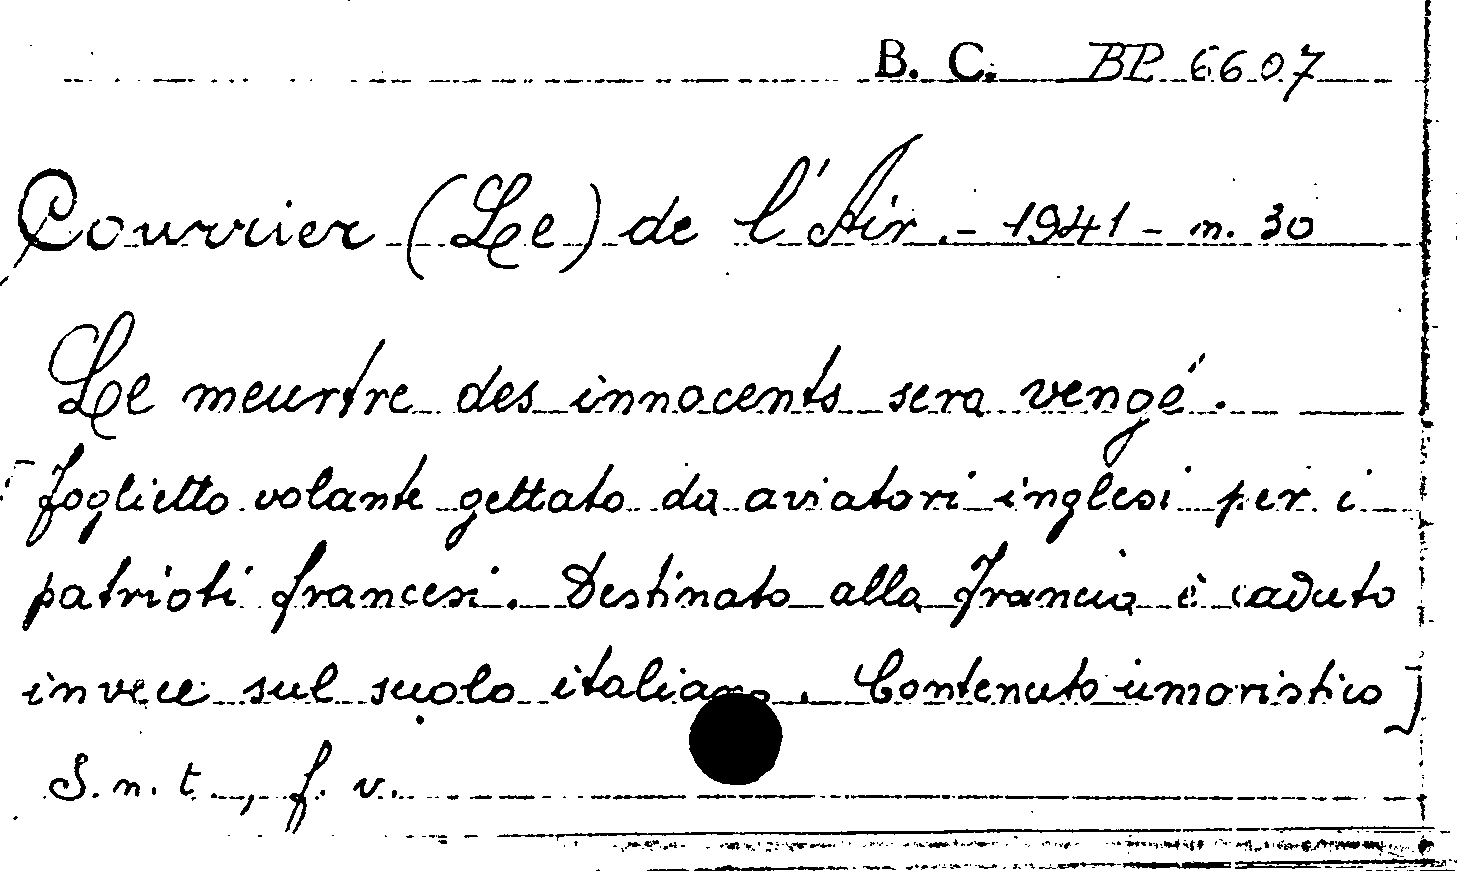 B. C. BP 6607
Courrier (Le) de l'Air. - 1941 - n. 30
Le meurtre des innocents sera vengé.
[foglietto volante gettato da aviatori inglesi per i
patrioti francesi. Destinato alla Francia è caduto
invece sul suolo italiano. Contenuto umoristico]
S. n. t., f. v.